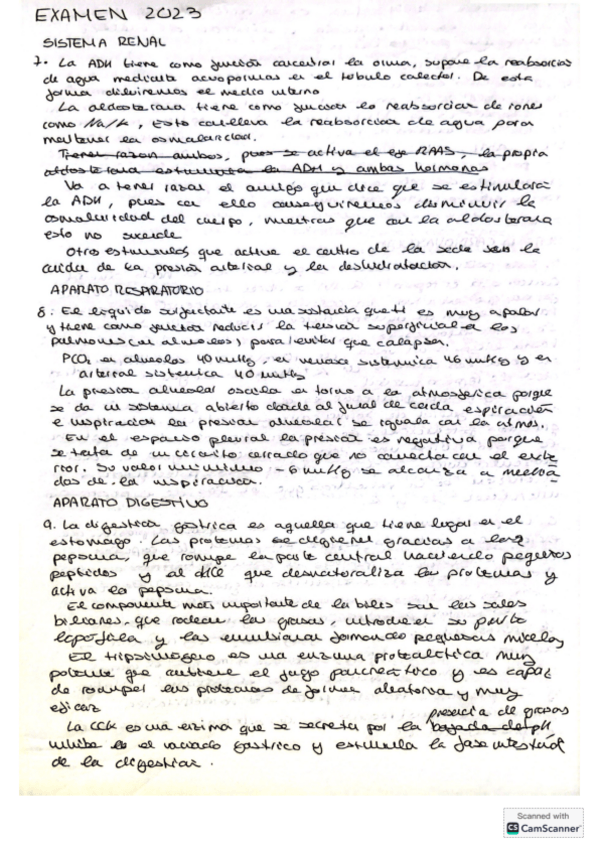 EXAMEN 2023
SISTEMA RENAL
7. La ADH tiene como función concentrar la orina, supone la reabsorción
de agua mediante acuoporinas en el túbulo colector. De esta
forma diluiremos el medio interno
La aldosterona tiene como función la reabsorción de iones
como Na/K, esto conlleva la reabsorción de agua para
mantener la osmolaridad.
Tienen razón ambos, pues se activa el eje RAAS, la propia
aldosterona estimula la ADH y ambas hormonas
Va a tener razón el amigo que dice que se estimulará
la ADH, pues con ello conseguiremos disminuir la
osmolaridad del cuerpo, mientras que con la aldosterona
esto no sucede
Otros estímulos que active el centro de la sede son la
caída de la presión arterial y la deshidratación.
APARATO RESPIRATORIO
8. El líquido surfactante es una sustancia que es muy apolar
y tiene como función reducir la tensión superficial en los
pulmones (en alveolos), para evitar que colapsen.
PCO2 en alveolos 40 mmHg, en venosa sistémica 46 mmHg y en
arterial sistémica 40 mmHg
La presión alveolar oscila en torno a la atmosférica porque
se da un sistema abierto donde al final de cada espiración
e inspiración la presión alveolar se iguala con la atmos.
En el espacio pleural la presión es negativa porque
se trata de un circuito cerrado que no conecta con el exte
rior. Su valor mínimo -6 mmHg se alcanza a media
dos de la inspiración.
APARATO DIGESTIVO
9. La digestión gástrica es aquella que tiene lugar en el
estómago. Las proteínas se digieren gracias a la
pepsina, que rompe la parte central haciendo pequeños
péptidos y al HCl que desnaturaliza las proteínas y
activa la pepsina.
El componente más importante de la bilis son las sales
biliares, que rodean las grasas, introducen su parte
lipófila y las emulsionan formando pequeñas micelas
El tripsinógeno es una enzima proteolítica muy
potente que contiene el jugo pancreático y es capaz
de romper las proteínas de forma aleatoria y muy
eficaz
presencia de grasas
La CCK es una enzima que se secreta por la bajada del pH
inhibe el vaciado gástrico y estimula la fase intestinal
de la digestión.
Scanned with
CS CamScanner